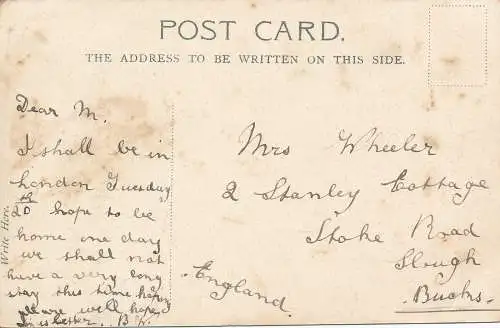 POST CARD.
THE ADDRESS TO BE WRITTEN ON THIS SIDE.
Write Here.
Dear M.
I shall be in
London Tuesday
20th hope to be
home one day
we shall not
have a very long
stay this time hope
all are well hope
is better. B
Mrs Wheeler
2 Stanley Cottage
Stoke Road
Slough
Bucks.
England.